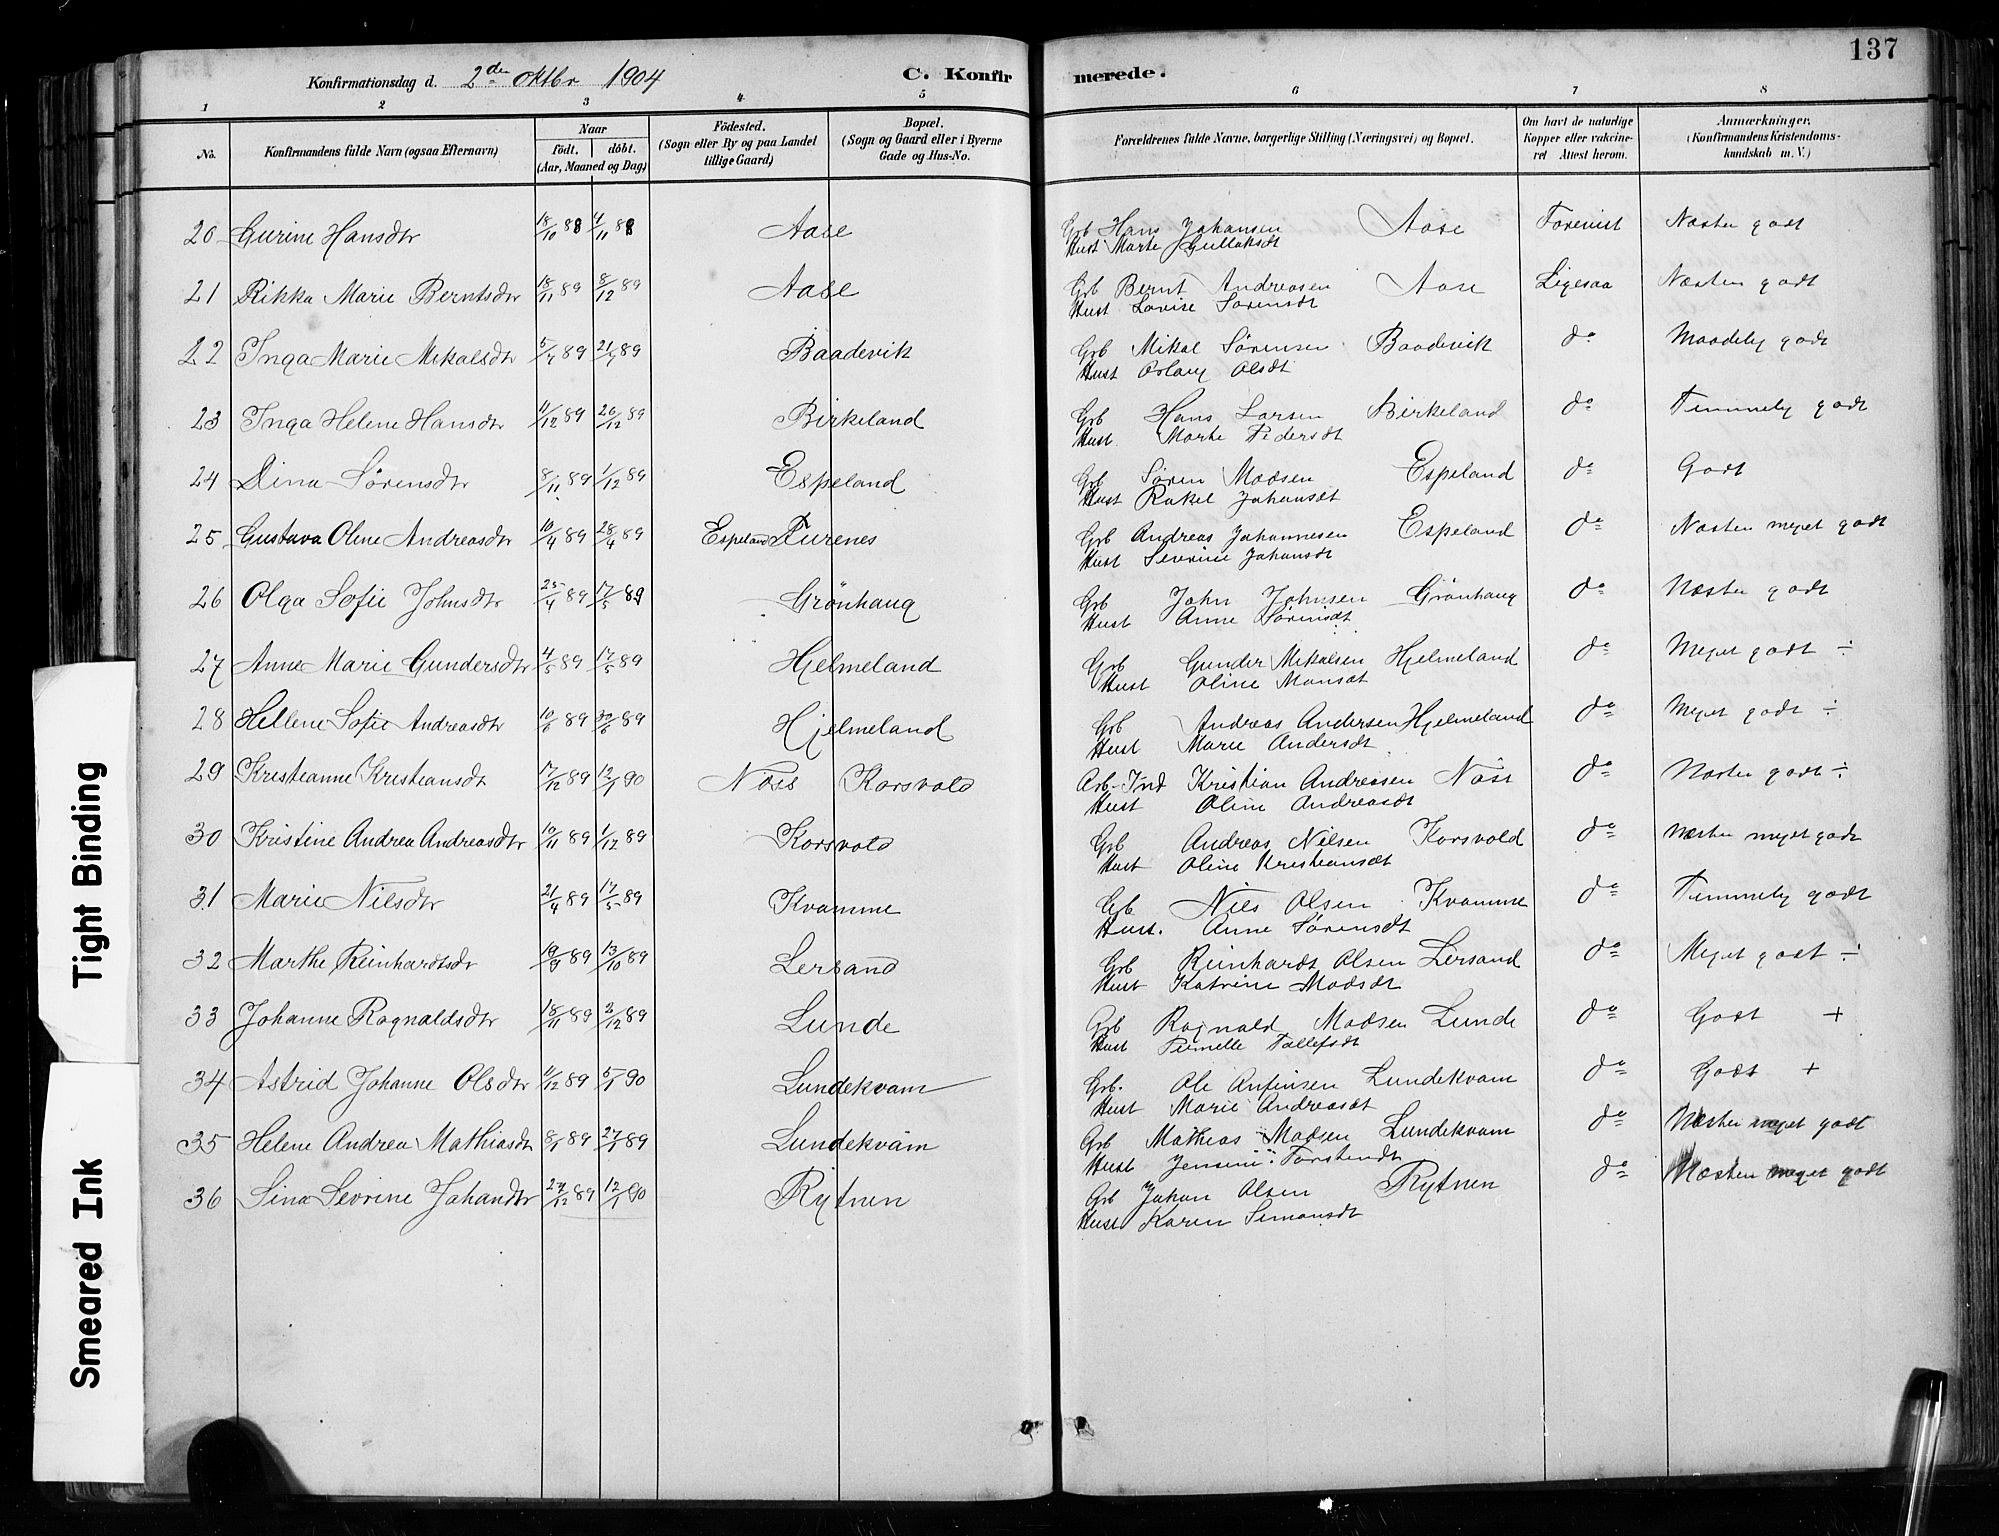 137
Konfirmationsdag d. 2den oktbr 1904
C. Konfirmerede.
1 2 3 4 5 6 7 8
No.
Konfirmandens fulde Navn (ogsaa Efternavn)
Naar
født. døbt.
(Aar, Maaned og Dag)
Fødested.
(Sogn eller By og paa Landet
tillige Gaard)
Bopæl.
(Sogn og Gaard eller i Byerne
Gade og Hus-No.
Forældrenes fulde Navne, borgerlige Stilling (Næringsvei) og Bopæl.
Om havt de naturlige
Kopper eller vakcine-
ret Attest herom.
Anmærkninger.
(Konfirmandens Kristendoms-
kundskab m. V.)
20 Gurine Hansdtr 18/10 88 4/11 88 Aase Grb Hans Johansen Aase Forevist Næsten godt
Hust Marte Gullaksdt
21 Rikka Marie Berntsdtr 18/11 89 8/12 89 Aase Grb Bernt Andreasen Aase Ligesaa Næsten godt
Hust Lovise Sørensdt
22 Inga Marie Mikalsdtr 5/7 89 21/7 89 Baadevik Grb Mikal Sørensen Baadevik do Maadelig godt
Hust Aslaug Olsdt
23 Inga Helene Hansdtr 11/12 89 26/12 89 Birkeland Grb Hans Larsen Birkeland do Temmelig godt
Hust. Marte Pedersdt
24 Dina Sørensdtr 8/11 89 1/12 89 Espeland Grb Søren Madsen Espeland do Godt
Hust Rakel Johansdt
25 Gustava Oline Andreasdtr 10/4 89 28/4 89 Espeland Furenes Grb Andreas Johannesen Espeland do Næsten meget godt
Hust Severine Johansdt
26 Olga Sofie Johnsdtr 25/4 89 17/5 89 Grönhaug Grb John Johnsen Grönhaug do Næsten godt
Hust Anne Sørensdt
27 Anna Marie Gundersdtr 4/5 89 17/5 89 Hjelmeland Grb Gunder Mikalsen Hjelmeland do Meget godt ÷
Hust Oline Monsdt
28 Hellene Sofie Andreasdtr 10/6 89 30/6 89 Hjelmeland Grb Andreas Andersen Hjelmeland do Meget godt ÷
Hust Marie Andersdt
29 Kristianne Kristiansdt 17/12 89 12/1 90 Nöss Korsvold Arb-Ind Kristian Andreasen Nöss do Næsten godt ÷
Hust Oline Andreasdt
30 Kristine Andrea Andreasdtr 10/11 89 1/12 89 Korsvold Grb Andreas Nilsen Korsvold do Næsten meget godt
Hust Oline Kristiansdt
31 Marie Nilsdtr 21/4 89 17/5 89 Kvamme Grb Nils Olsen Kvamme do Temmelig godt
Hust. Anne Sørensdt
32 Marthe Reinhardtsdt 19/9 89 13/10 89 Lersand Grb Reinhardt Olsen Lersand do Meget godt ÷
Hust Katrine Madsdt
33 Johanne Ragnaldsdtr 18/11 89 2/12 89 Lunde Grb Ragnald Madsen Lunde do Godt +
Hust Pernelle Tollefsdt
34 Astrid Johanne Olsdtr 11/12 89 5/1 90 Lundekvam Grb. Ole Anfinsen Lundekvam do Godt +
Hust Marie Andreasdt
35 Helene Andrea Mathiasdt 8/1 89 27/1 89 Lundekvam Grb Mathias Madsen Lundekvam do Næsten meget godt
Hust Jensine Torstendt
36 Sina Sevrine Johandtr 27/12 89 12/1 90 Rytnen Grb Johan Olsen Rytnen do Næsten meget godt
Hust Karen Simonsdt
Tight Binding
Smeared Ink